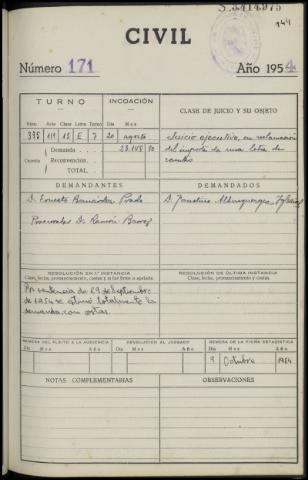 144
CIVIL
Número 171
Año 1954
TURNO
INCOACIÓN
CLASE DE JUICIO Y SU OBJETO
Núm. Año Clase Letra Turno
Día Mes
335 E 7 20 agosto
Cuantía
Demanda
Reconvención.
TOTAL.
Juicio ejecutivo, en reclamación
del importe de una letra de
cambio
DEMANDANTES
DEMANDADOS
D. Ernesto Prado
Procurador D. Ramón
D. Faustino Alburquerque
RESOLUCIÓN EN 1.ª INSTANCIA
Clase, fecha, pronunciamiento, costas y si fue firme o apelada.
RESOLUCIÓN DE ÚLTIMA INSTANCIA
Clase, fecha, pronunciamiento y costas
Por sentencia de 29 de Septiembre
de 1954 se estimó totalmente la
demanda con costas.
REMESA DEL PLEITO A LA AUDIENCIA
DEVOLUCIÓN AL JUZGADO
REMESA DE LA FICHA ESTADÍSTICA
Día Mes Año
Día Mes Año
Día Mes Año
9 Octubre 1954
NOTAS COMPLEMENTARIAS
OBSERVACIONES